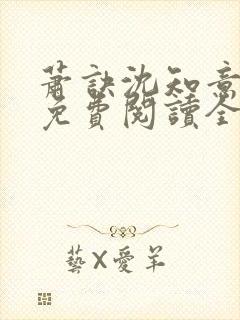 蕭訣沈知意
免費閱讀全
藝X愛羊